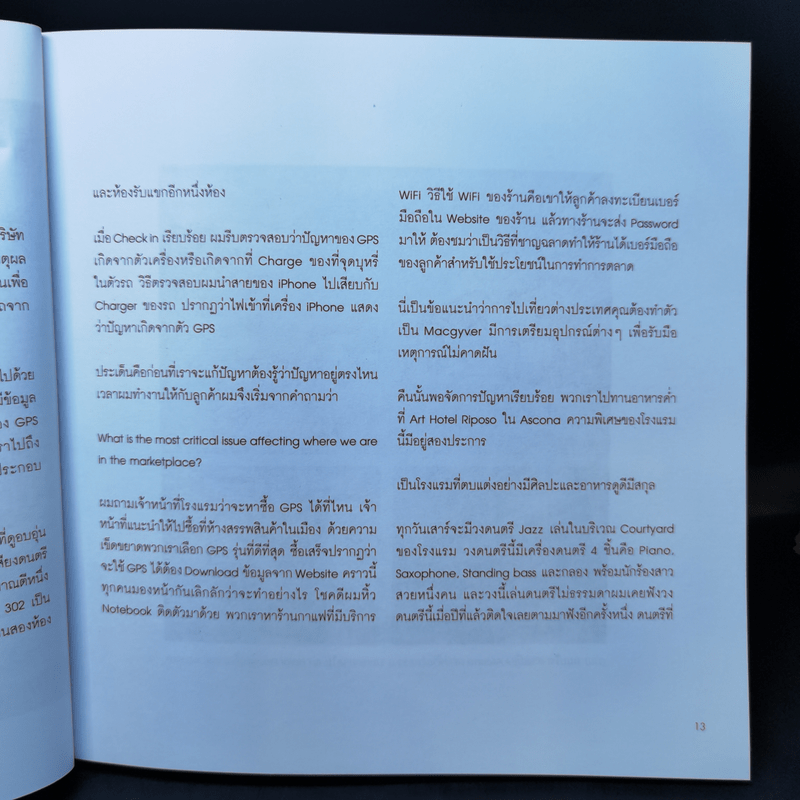 ริษัท
ตุผล
นเพื่อ
ถจาก
ไปด้วย
มีข้อมูล
อง GPS
ราไปถึง
ประกอบ
ที่ดูอบอุ่น
สียงดนตรี
าณตีหนึ่ง
302 เป็น
นสองห้อง
และห้องรับแขกอีกหนึ่งห้อง
เมื่อ Check in เรียบร้อย ผมรีบตรวจสอบว่าปัญหาของ GPS
เกิดจากตัวเครื่องหรือเกิดจากที่ Charge ของที่จุดบุหรี่
ในตัวรถ วิธีตรวจสอบผมนำสายของ iPhone ไปเสียบกับ
Charger ของรถ ปรากฏว่าไฟเข้าที่เครื่อง iPhone แสดง
ว่าปัญหาเกิดจากตัว GPS
ประเด็นคือก่อนที่เราจะแก้ปัญหาต้องรู้ว่าปัญหาอยู่ตรงไหน
เวลาผมทำงานให้กับลูกค้าผมจึงเริ่มจากคำถามว่า
What is the most critical issue affecting where we are
in the marketplace?
ผมถามเจ้าหน้าที่โรงแรมว่าจะหาซื้อ GPS ได้ที่ไหน เจ้า
หน้าที่แนะนำให้ไปซื้อที่ห้างสรรพสินค้าในเมือง ด้วยความ
เข็ดขยาดพวกเราเลือก GPS รุ่นที่ดีที่สุด ซื้อเสร็จปรากฏว่า
จะใช้ GPS ได้ต้อง Download ข้อมูลจาก Website คราวนี้
ทุกคนมองหน้ากันเลิกลักว่าจะทำอย่างไร โชคดีผมหิ้ว
Notebook ติดตัวมาด้วย พวกเราหาร้านกาแฟที่มีบริการ
WiFi วิธีใช้ WiFi ของร้านคือเขาให้ลูกค้าลงทะเบียนเบอร์
มือถือใน Website ของร้าน แล้วทางร้านจะส่ง Password
มาให้ ต้องชมว่าเป็นวิธีที่ชาญฉลาดทำให้ร้านได้เบอร์มือถือ
ของลูกค้าสำหรับใช้ประโยชน์ในการทำการตลาด
นี่เป็นข้อแนะนำว่าการไปเที่ยวต่างประเทศคุณต้องทำตัว
เป็น Macgyver มีการเตรียมอุปกรณ์ต่างๆ เพื่อรับมือ
เหตุการณ์ไม่คาดฝัน
คืนนั้นพอจัดการปัญหาเรียบร้อย พวกเราไปทานอาหารค่ำ
ที่ Art Hotel Riposo ใน Ascona ความพิเศษของโรงแรม
นี้มีอยู่สองประการ
เป็นโรงแรมที่ตบแต่งอย่างมีศิลปะและอาหารดูดีมีสกุล
ทุกวันเสาร์จะมีวงดนตรี Jazz เล่นในบริเวณ Courtyard
ของโรงแรม วงดนตรีนี้มีเครื่องดนตรี 4 ชิ้นคือ Piano,
Saxophone, Standing bass และกลอง พร้อมนักร้องสาว
สวยหนึ่งคน และวงนี้เล่นดนตรีไม่ธรรมดาผมเคยฟังวง
ดนตรีนี้เมื่อปีที่แล้วติดใจเลยตามมาฟังอีกครั้งหนึ่ง ดนตรีที่
13